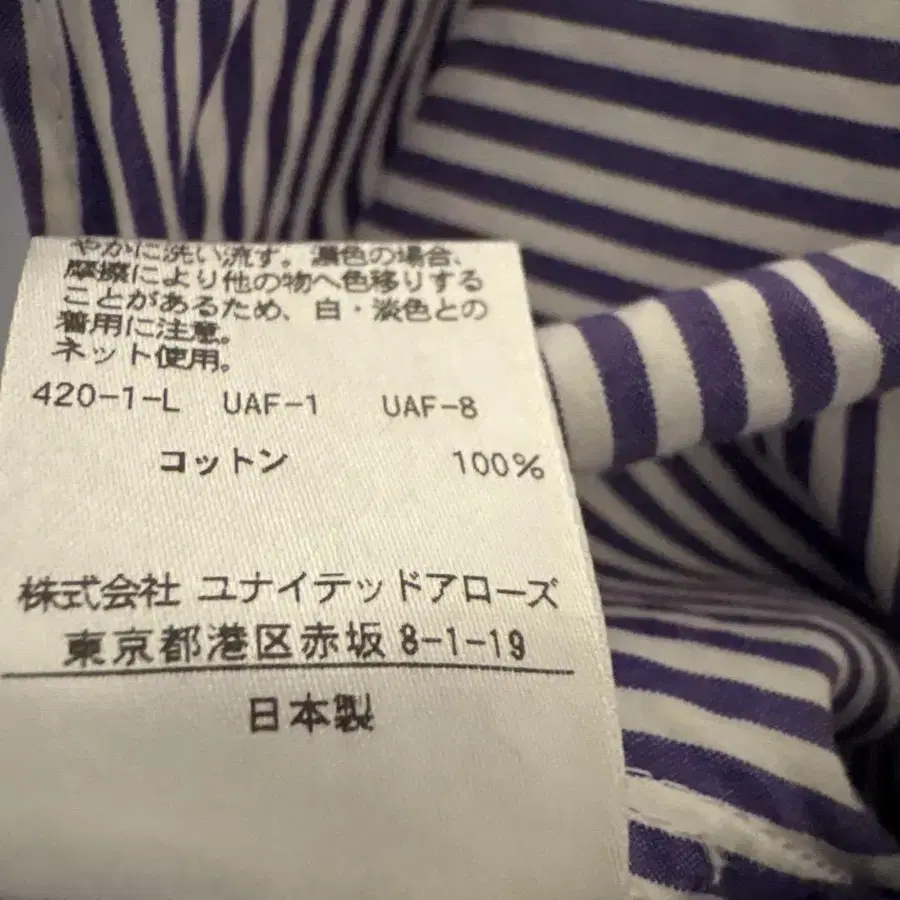 やかに洗い流す。濃色の場合、
摩擦により他の物へ色移りする
ことがあるため、白・淡色との
着用に注意。
ネット使用。
420-1-L UAF-1 UAF-8
コットン 100%
株式会社 ユナイテッドアローズ
東京都港区赤坂 8-1-19
日本製